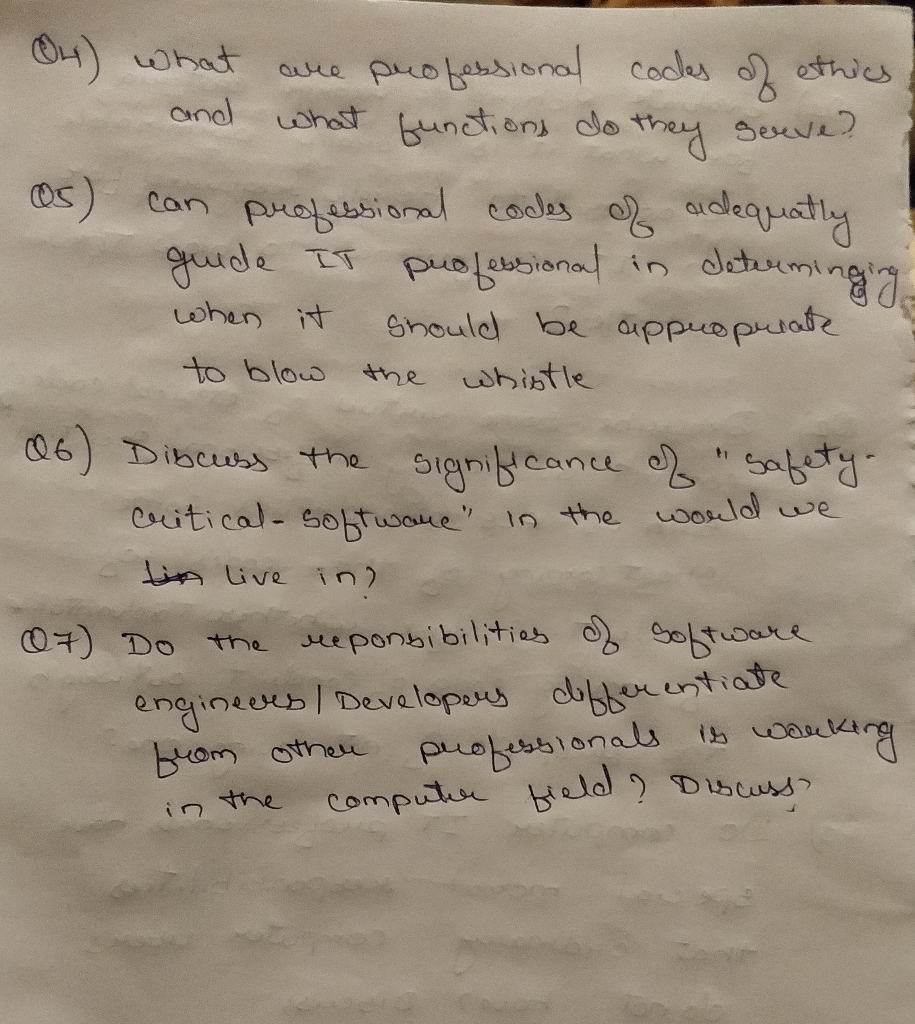 Q4) what are professional codes of ethics
and what functions do they serve?
Q5) can professional codes of adequatly
guide IT professional in determinging
when it should be appropriate
to blow the whistle
Q6) Discuss the significance of "safety-
critical-software" in the world we
live in?
Q7) Do the reponsibilities of software
engineers/Developers differentiate
from other professionals is working
in the computer field? Discuss?